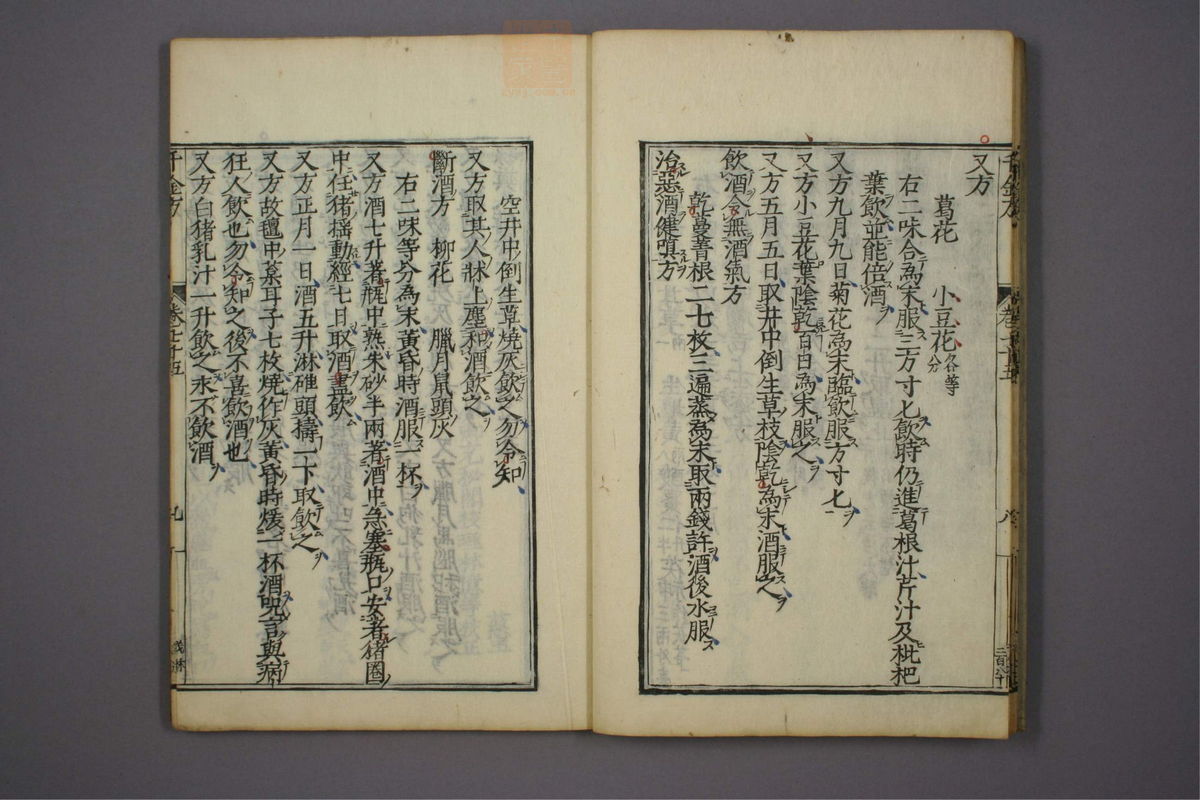 又方
葛花　小豆花各等分
右二味合為末服三方寸匕飲時仍進葛根汁芹汁及枇杷
葉飲並能倍酒
又方九月九日菊花為末臨飲服方寸匕
又方小豆花葉陰乾百日為末服之
又方五月五日取井中倒生草枝陰乾為末酒服之
飲酒令無酒氣方
乾蔓菁根二七枚三遍蒸為末取兩錢許酒後水服
治惡酒健嗔方
空井中倒生草燒灰飲之勿令知
又方取其人牀上塵和酒飲之
斷酒方　柳花　臘月鼠頭灰
右二味等分為末黃昏時酒服一杯
又方酒七升著瓶中熟朱砂半兩著酒中急塞瓶口安著豬圈
中任豬搖動經七日取酒盡飲
又方正月一日酒五升淋碓頭擣一下取飲之
又方故氈中菜耳子七枚燒作灰黃昏時煖一杯酒呪言與病
狂人飲也勿令知之後不喜飲酒也
又方白豬乳汁一升飲之永不飲酒
千金方　卷二十五　九